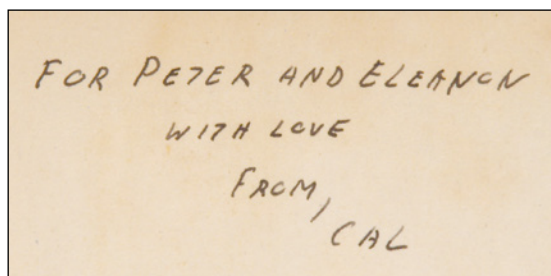 FOR PETER AND ELEANOR
WITH LOVE
FROM,
CAL